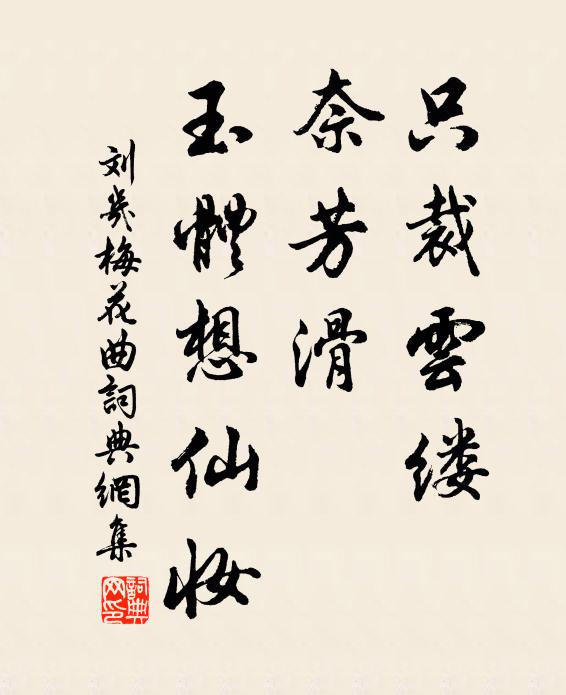 只裁雲缕
奈芳滑
玉體想仙妆
刘幾梅花曲詞典網集
詞典
网印